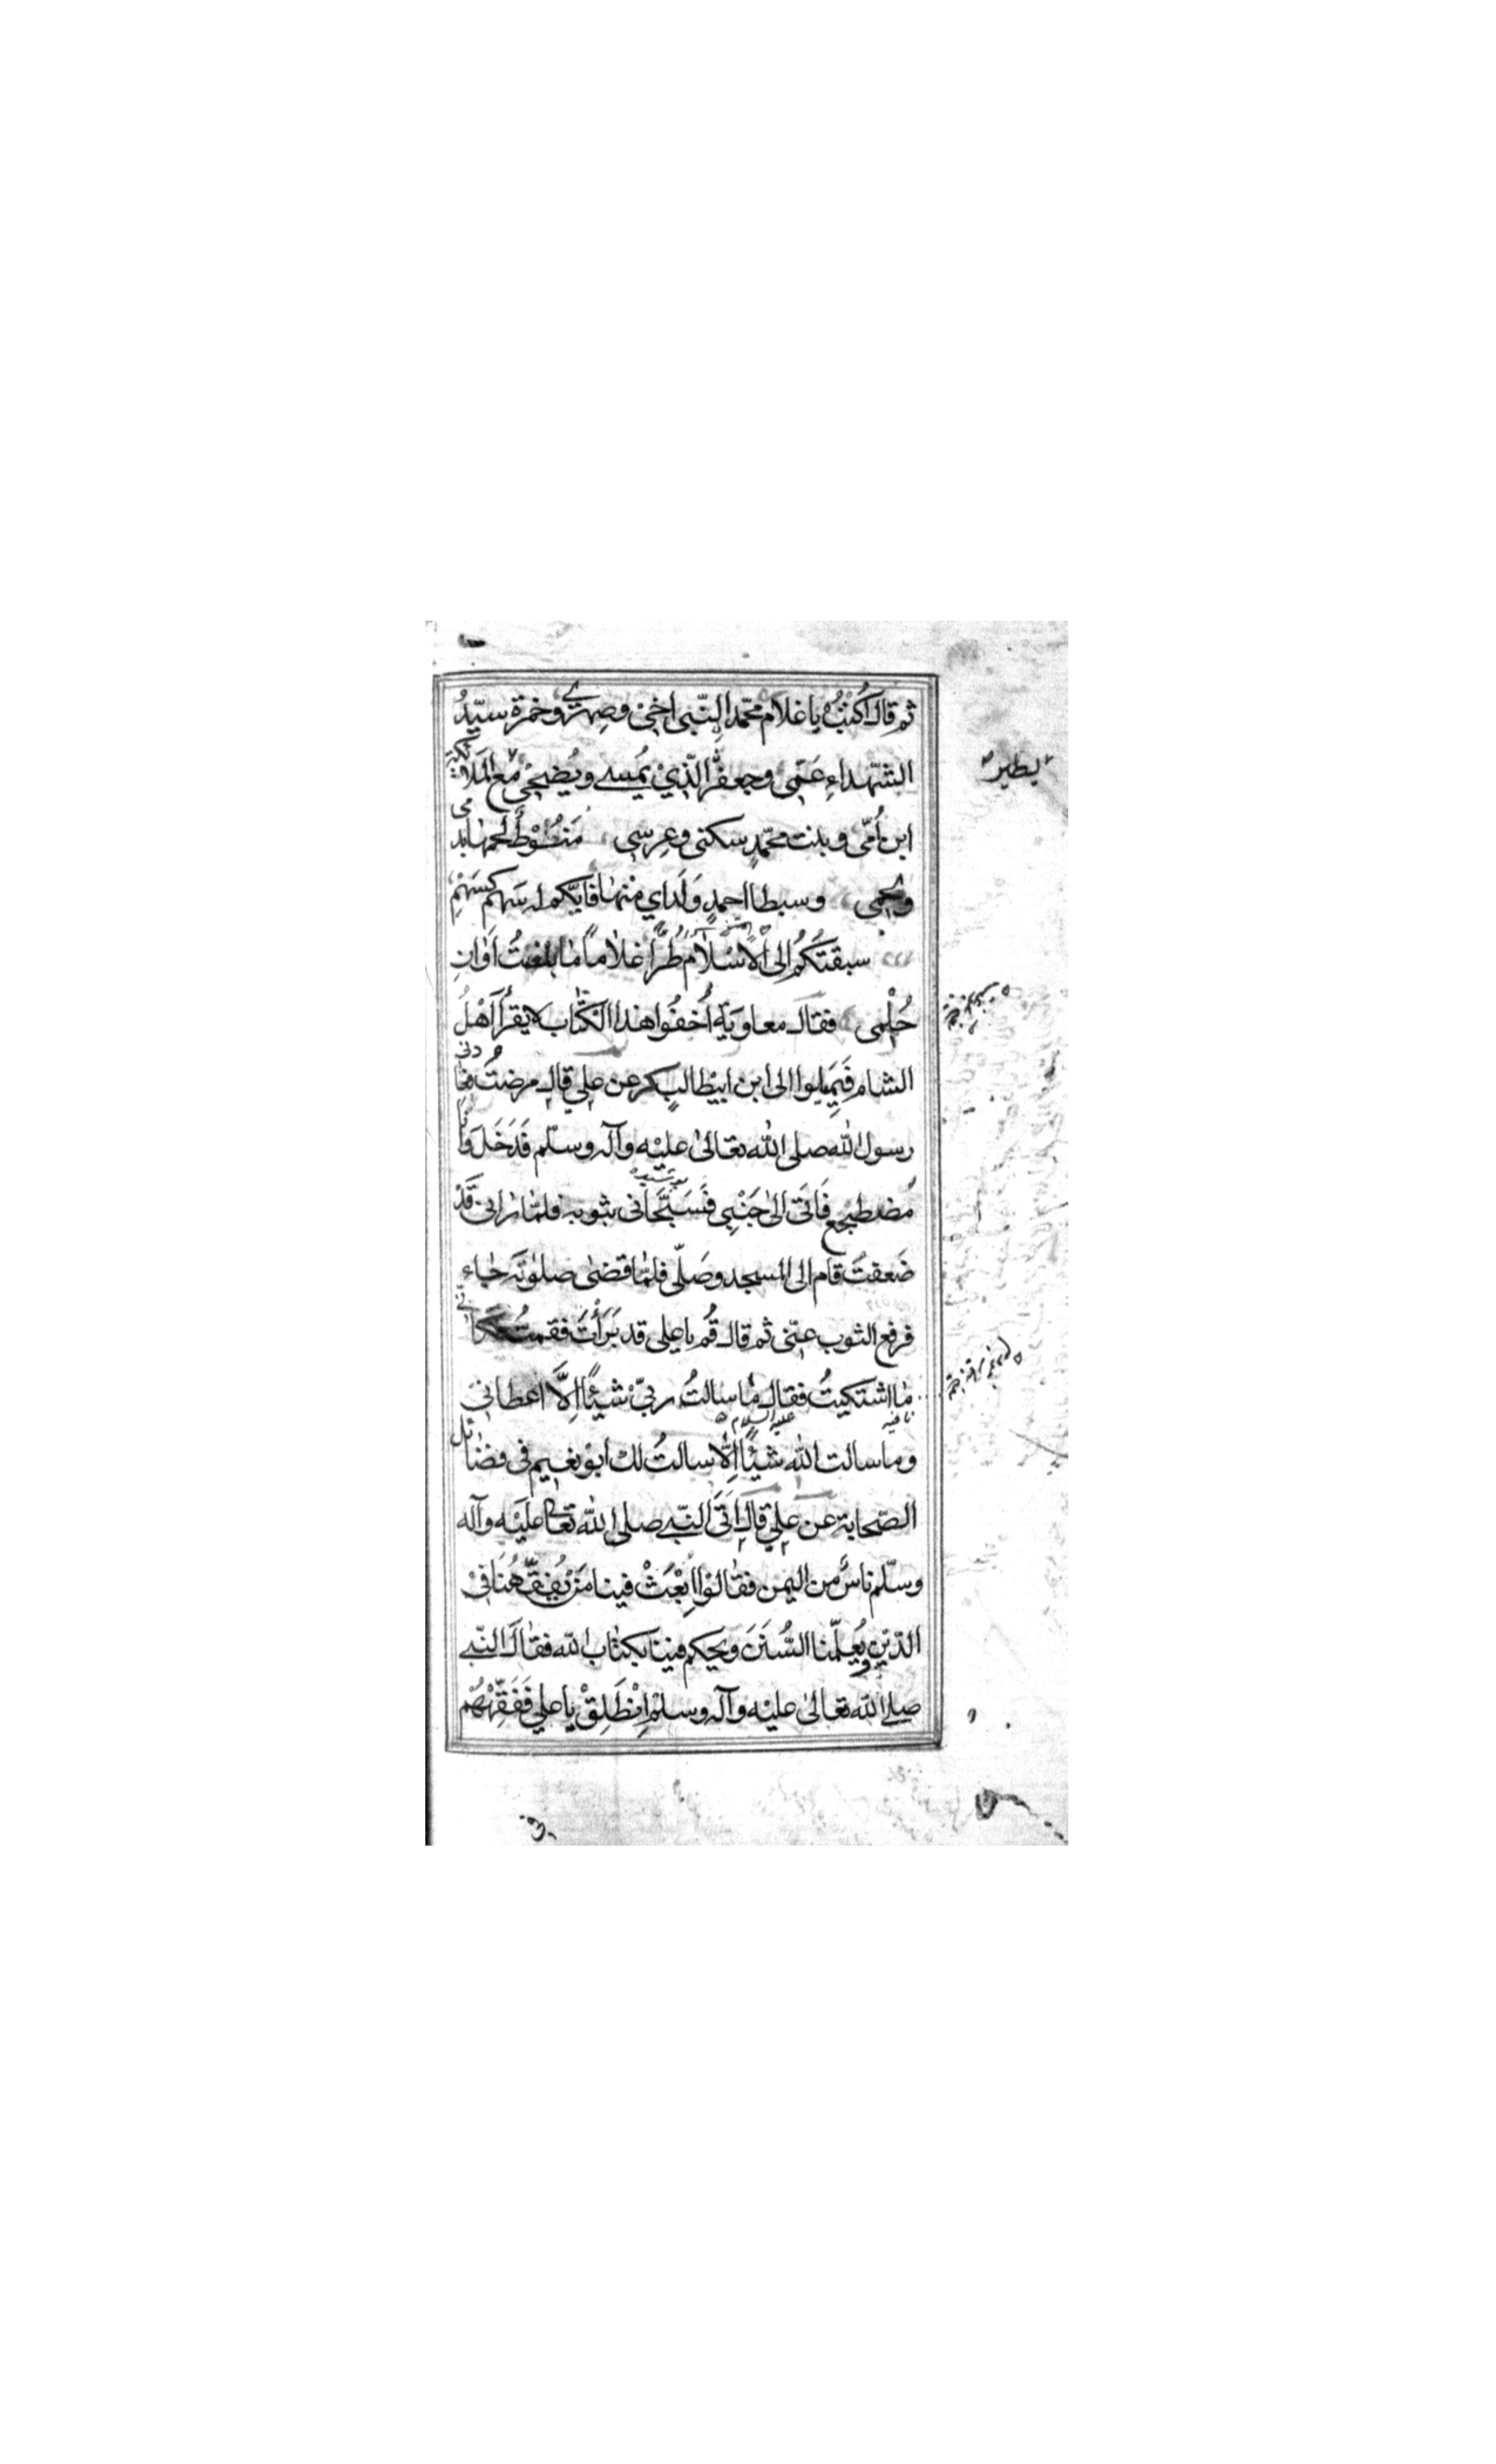 ثم قال اُكتُبْ يا غلام محمّد النّبي اخي وصِهرِي وحمزة سيّدُ
الشّهداءِ عَمّي وجعفرُ الّذِيْ يُمسي ويُضحِيْ مع المَلائكة
يطير
ابن اُمّي وبنت محمّدٍ سكني وعِرسي مَنُوْطٌ لحمها بدمي
ولحمي وسبطا احمدٍ وَلَداي منها فايّكم له سَهم كسَهْمِي
سبقتُكُم الى الاْسْلام طُرّاً غلاماً ما بلغتُ اَوٰانِ
حُلْمي فقال معاوية اُخفُوا هذا الكتٰاب لا يقرأ اَهْلُ
الشام فَيَمِيلوا الى ابن ابيطالبٍ كر عن علي قال مرضتُ فعادني
رسول الله صلى الله تعالىٰ عليه وآله وسلّم فَدَخَلَ وانا
مضطجع فَاَتى الىٰ جَنْبِي فَسَجّٰاني بثوبه فلمّا رٰاني قَدْ
ضَعفتُ قام الى المسجد وصَلّى فلمّا قضىٰ صلوٰتَه جٰاء
فرفع الثوب عنّي ثم قال قُم يا علي قد بَرَأْتَ فقمتُ كانّي
مٰا اشتكيتُ فقال مٰا سالتُ ربّيْ شيئًا اِلَّا اعطاني
وما سالت الله شيئًا اِلّا سالتُ لك ابو نعيم في فضائل
الصّحابة عن علي قال اَتَى النّبي صلى الله تعالى عليه وآله
وسلّم ناسٌ من اليمن فقالوْا اِبْعَثْ فينا مَنْ يُفقّهُنَا فيْ
الدّيْنِ ويُعلّمنا السُّنَنَ ويحكم فينا بكتٰاب الله فقال النّبي
صلى الله تعالىٰ عليه وآله وسلّم اِنْطَلِقْ يا علي فَفَقِّهْهُم